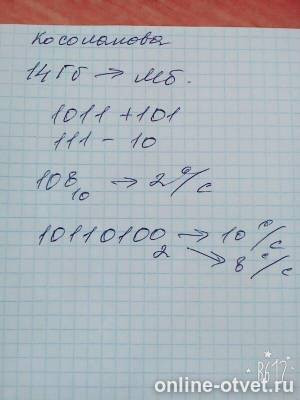 Косолапова
14 Гб → Мб.
1011 + 101
111 - 10
108₁₀ → 2 с/с
10110100₂ → 10 с/с
→ 8 с/с
online-otvet.ru